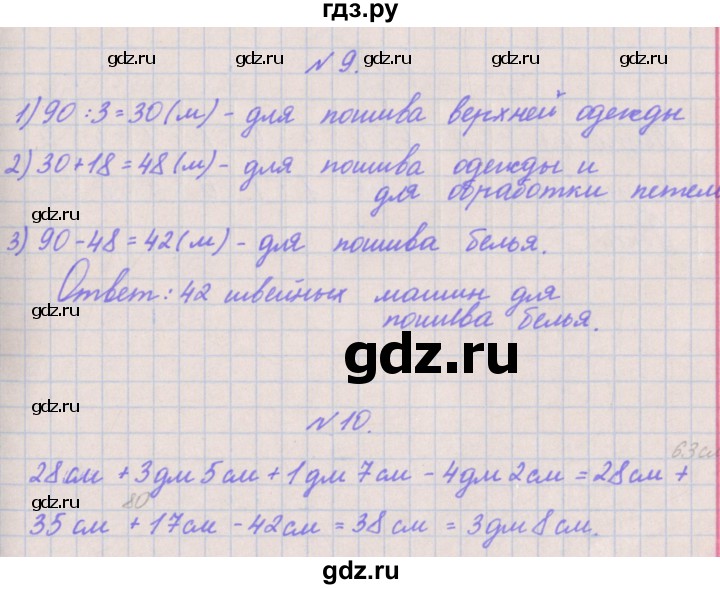 гдз.ру
gdz.ru gdz.ru gdz.ru gdz.ru
№ 9.
1) 90 : 3 = 30 (м) - для пошива верхней одежды
2) 30 + 18 = 48 (м) - для пошива одежды и
для обработки петель
gdz.ru
3) 90 - 48 = 42 (м) - для пошива белья.
Ответ: 42 швейных машин для
gdz.ru
пошива белья.
gdz.ru
gdz.ru
№ 10.
63 см
28 см + 3 дм 5 см + 1 дм 7 см - 4 дм 2 см = 28 см +
gdz.ru
80
35 см + 17 см - 42 см = 38 см = 3 дм 8 см.
gdz.ru